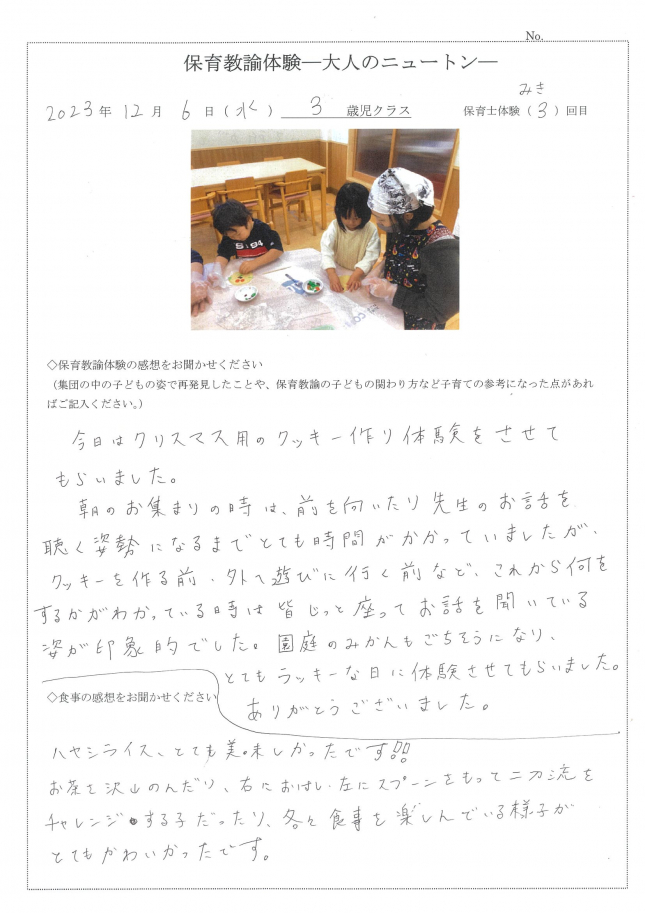 No.
保育教諭体験―大人のニュートン―
みき
2023年 12月 6日(水) 3 歳児クラス 保育士体験(3)回目
◇保育教諭体験の感想をお聞かせください
(集団の中の子どもの姿で再発見したことや、保育教諭の子どもの関わり方など子育ての参考になった点があれ
ばご記入ください。)
今日はクリスマス用のクッキー作り体験をさせて
もらいました。
朝のお集まりの時は、前を向いたり先生のお話を
聴く姿勢になるまでとても時間がかかっていましたが、
クッキーを作る前、外へ遊びに行く前など、これから何を
するかがわかっている時は皆じっと座ってお話を聞いている
姿が印象的でした。園庭のみかんもごちそうになり、
とてもラッキーな日に体験させてもらいました。
ありがとうございました。
◇食事の感想をお聞かせください
ハヤシライス、とても美味しかったです!!
お茶を沢山のんだり、右におはし、左にスプーンをもって二刀流を
チャレンジする子だったり、各々食事を楽しんでいる様子が
とてもかわいかったです。